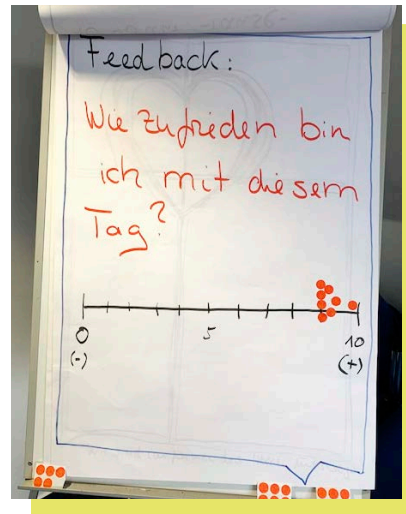 Feedback:
Wie zufrieden bin
ich mit diesem
Tag?
0 5 10
(-) (+)